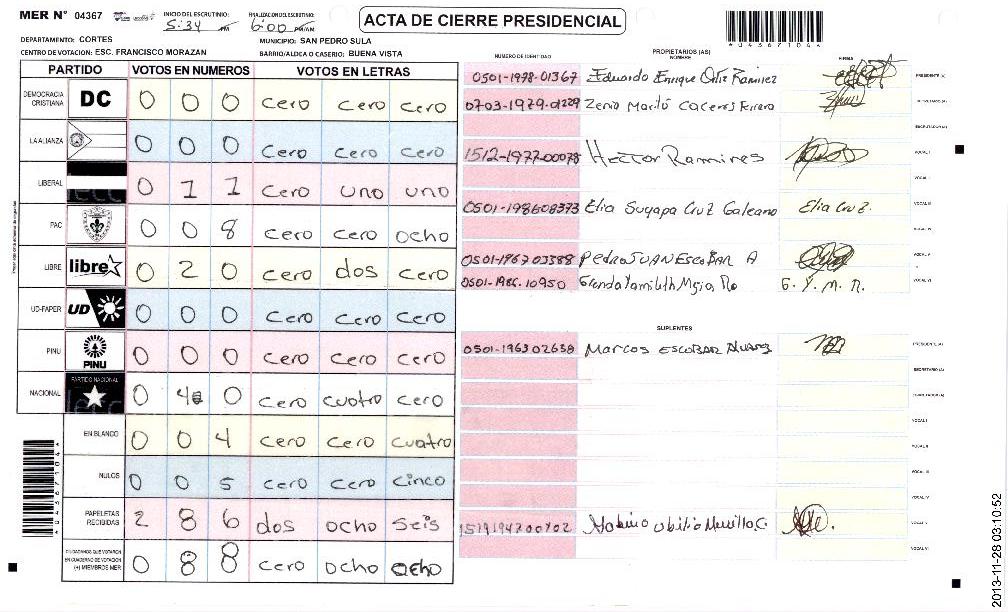 MER N° 04367
INICIO DEL ESCRUTINIO:
5:34
FINALIZACION DEL ESCRUTINIO:
6:00 PM/AM
ACTA DE CIERRE PRESIDENCIAL
*04367104*
DEPARTAMENTO: CORTES
MUNICIPIO: SAN PEDRO SULA
CENTRO DE VOTACION: ESC. FRANCISCO MORAZAN
BARRIO/ALDEA O CASERIO: BUENA VISTA
PARTIDO VOTOS EN NUMEROS VOTOS EN LETRAS
DEMOCRACIA CRISTIANA DC 0 0 0 cero cero cero
LA ALIANZA 0 0 0 cero cero cero
LIBERAL 0 1 1 cero uno uno
PAC 0 0 8 cero cero ocho
LIBRE libre 0 2 0 cero dos cero
UD-FAPER UD 0 0 0 cero cero cero
PINU PINU 0 0 0 cero cero cero
NACIONAL PARTIDO NACIONAL 0 4 0 cero cuatro cero
EN BLANCO 0 0 4 cero cero cuatro
NULOS 0 0 5 cero cero cinco
PAPELETAS RECIBIDAS 2 8 6 dos ocho seis
CIUDADANOS QUE VOTARON EN CUADERNO DE VOTACION (+) MIEMBROS MER 0 8 8 cero ocho ocho
*04367104*
PROPIETARIOS (AS)
NUMERO DE IDENTIDAD NOMBRE FIRMA
0501-1978-01367 Eduardo Enrique Ortiz Ramirez PRESIDENTE (A)
0703-1979-01229 Zenia Maritó Caceres SECRETARIO (A)
ESCRUTADOR (A)
1512-1977-00078 Hector Ramires VOCAL I
VOCAL II
0501-198608373 Elia Suyapa Cruz Galeano Elia Cruz. VOCAL III
VOCAL IV
0501-196703388 Pedro JUAN ESCOBAR A VOCAL V
0501-1986-10950 G. Y. M. R. VOCAL VI
SUPLENTES
0501-196302638 Marcos ESCOBAR Alvarez PRESIDENTE (A)
SECRETARIO (A)
ESCRUTADOR (A)
VOCAL I
VOCAL II
VOCAL III
VOCAL IV
VOCAL V
VOCAL VI
2013-11-28 03:10:52